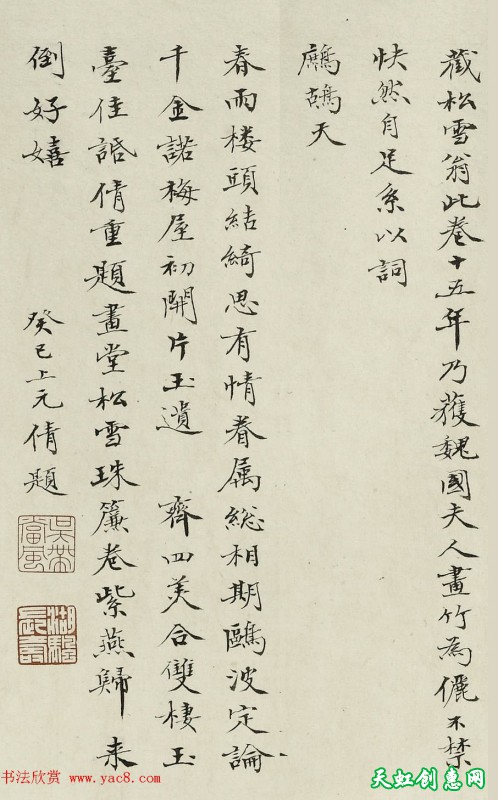 藏松雪翁此卷十五年乃獲魏國夫人畫竹為儷不禁
快然自足系以詞
鷓鴣天
春雨楼頭結綺思有情眷属総相期鷗波定論
千金諾梅屋初開片玉遺 齊四美合雙棲玉
臺佳話倩重題畫堂松雪珠簾卷紫燕歸来
倒好嬉
癸巳上元倩題
吳帶當風
湖颿長壽
书法欣赏 www.yac8.com
天虹创惠网